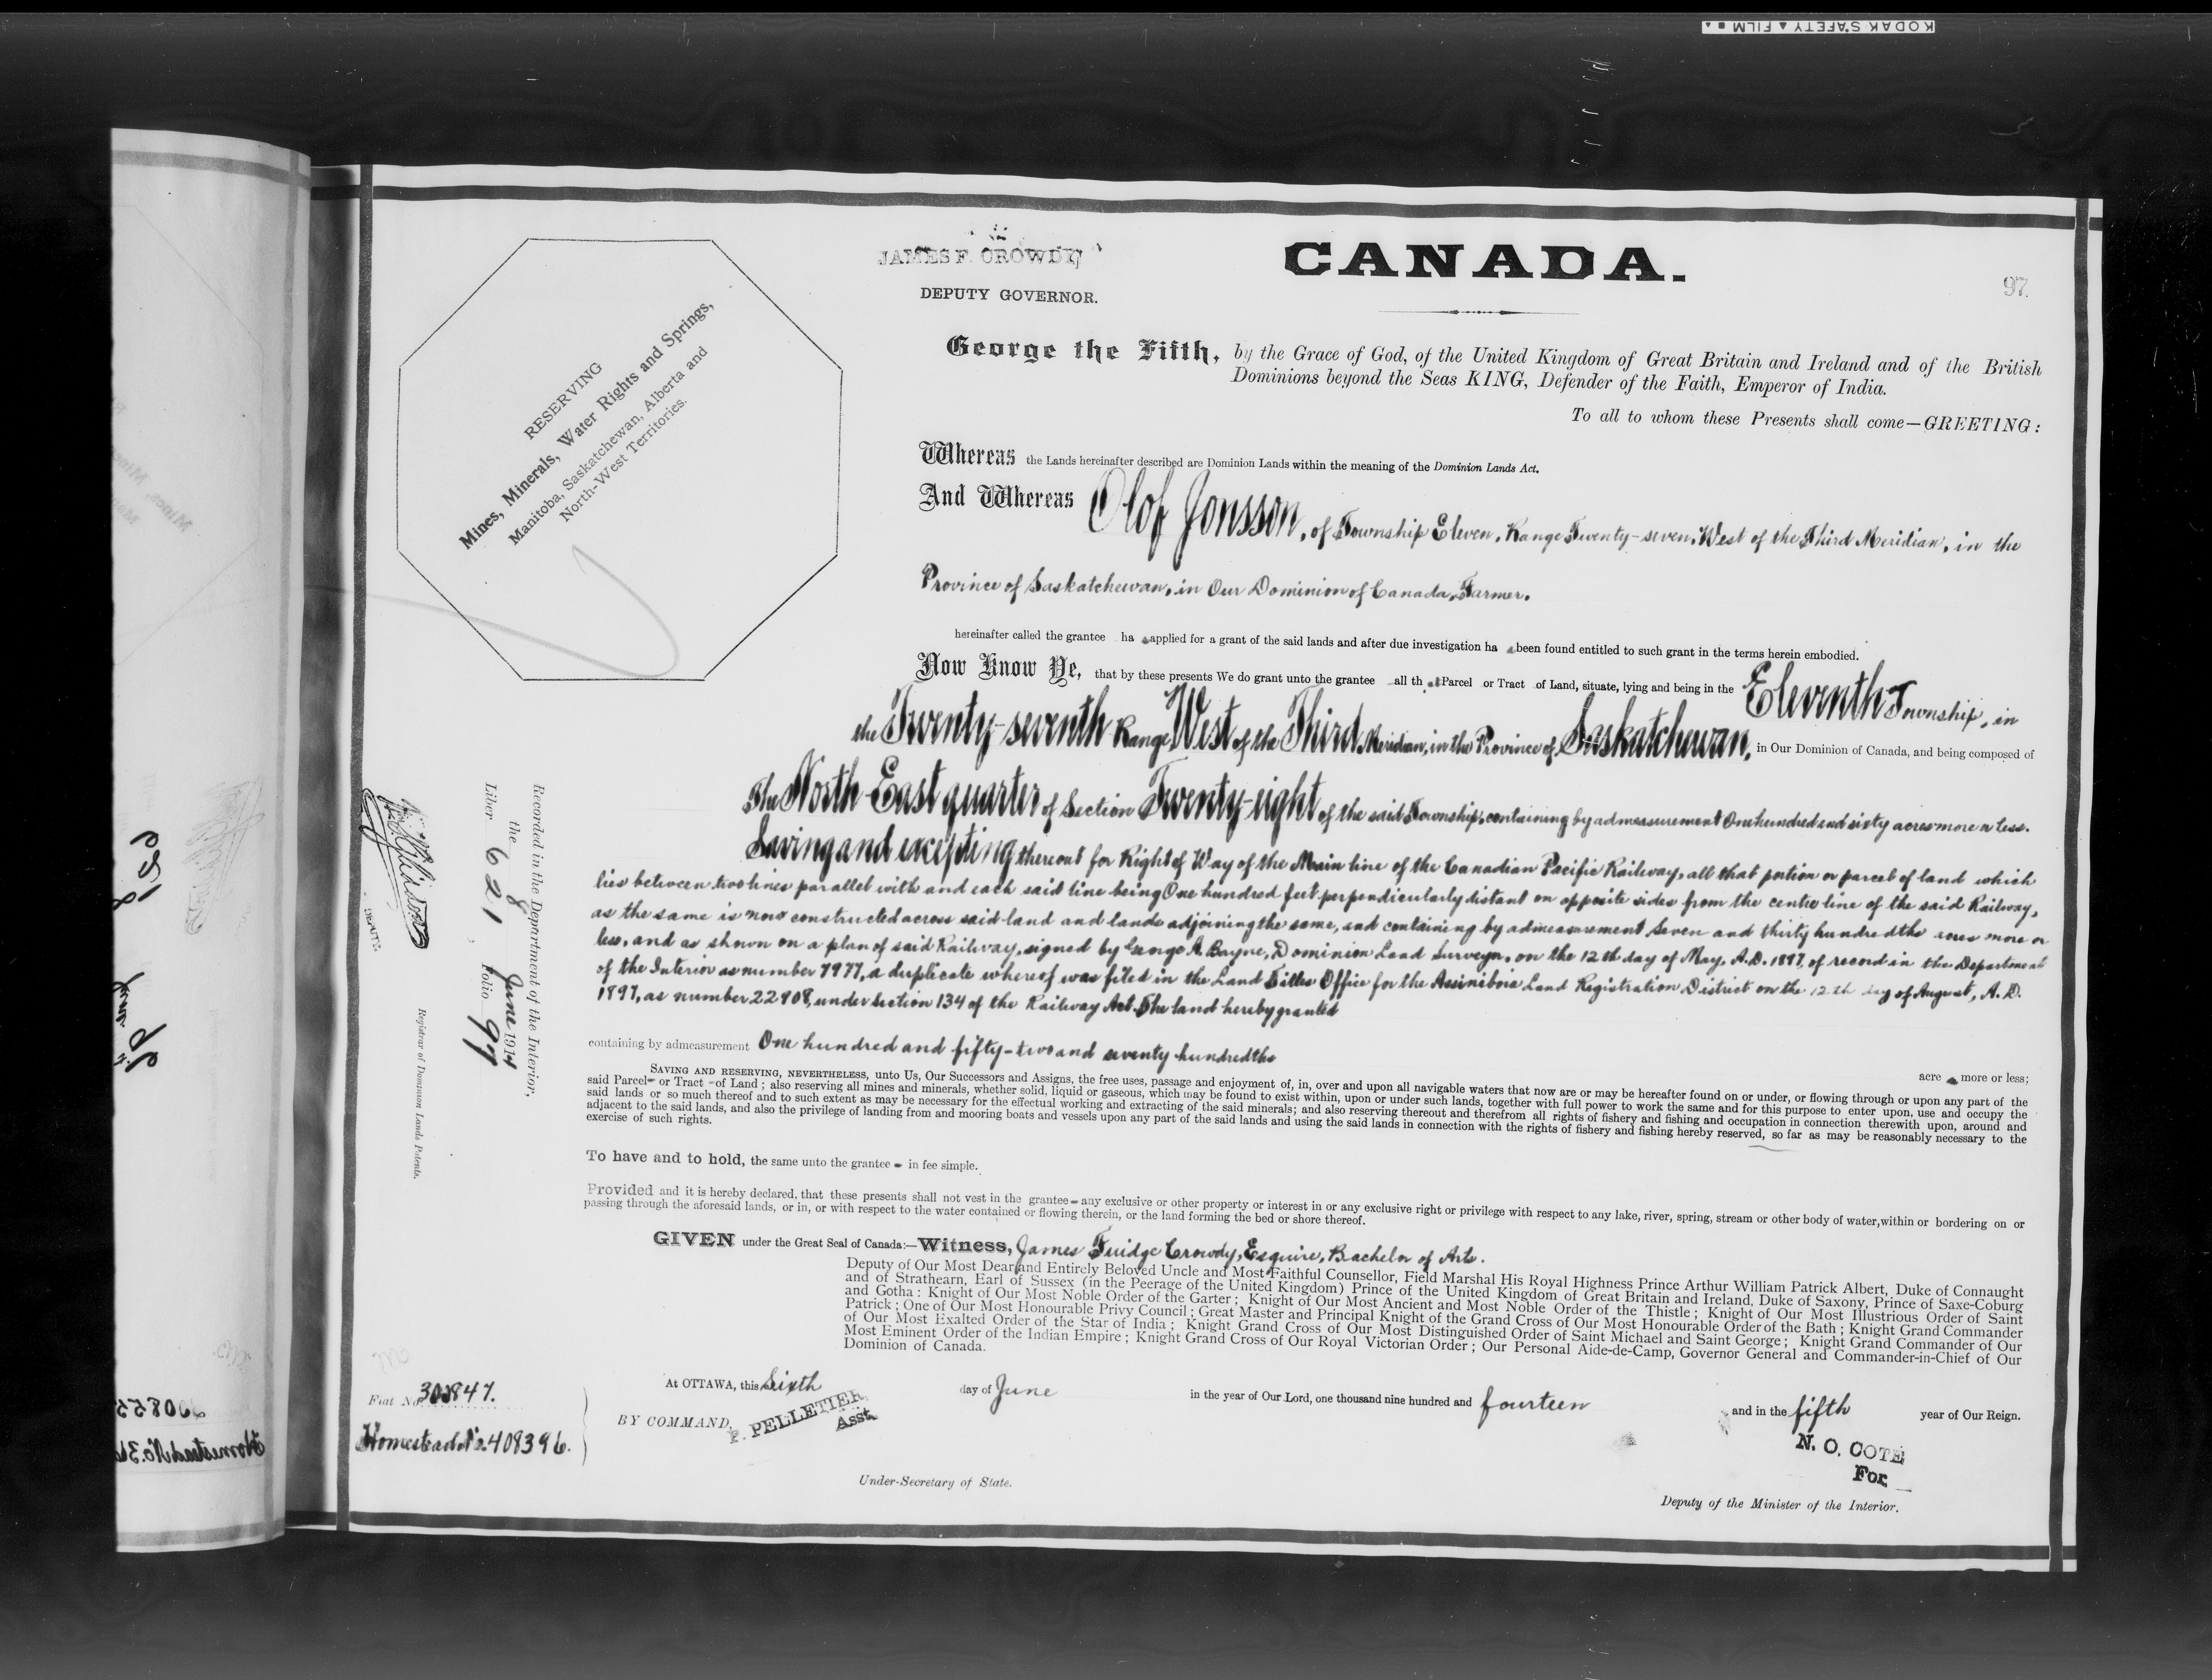 KODAK SAFETY FILM
JAMES F. CROWDY
DEPUTY GOVERNOR.
CANADA.
97.
RESERVING
Mines, Minerals, Water Rights and Springs,
Manitoba, Saskatchewan, Alberta and
North-West Territories.
George the Fifth, by the Grace of God, of the United Kingdom of Great Britain and Ireland and of the British
Dominions beyond the Seas KING, Defender of the Faith, Emperor of India.
To all to whom these Presents shall come—GREETING:
Whereas the Lands hereinafter described are Dominion Lands within the meaning of the Dominion Lands Act.
And Whereas Olof Jonsson, of Township Eleven, Range Twenty-seven, West of the Third Meridian, in the
Province of Saskatchewan, in Our Dominion of Canada, Farmer.
hereinafter called the grantee ha s applied for a grant of the said lands and after due investigation ha s been found entitled to such grant in the terms herein embodied.
Now Know Ye, that by these presents We do grant unto the grantee all th at Parcel or Tract of Land, situate, lying and being in the Eleventh Township, in
the Twenty-seventh Range West of the Third Meridian, in the Province of Saskatchewan, in Our Dominion of Canada, and being composed of
The North-East quarter of Section Twenty-eight of the said Township, containing by admeasurement One hundred and sixty acres more or less.
Saving and excepting thereout for Right of Way of the Main line of the Canadian Pacific Railway, all that portion or parcel of land which
lies between two lines parallel with and each said line being One hundred feet perpendicularly distant on opposite sides from the centre line of the said Railway,
as the same is now constructed across said land and lands adjoining the same, and containing by admeasurement Seven and thirty hundredths acres more or
less, and as shown on a plan of said Railway, signed by George A. Bayne, Dominion Land Surveyor, on the 12th day of May, A.D. 1897, of record in the Department
of the Interior as number 7977, a duplicate whereof was filed in the Land Titles Office for the Assiniboia Land Registration District on the 12th day of August, A.D.
1897, as number 22908, under section 134 of the Railway Act. The land hereby granted
containing by admeasurement One hundred and fifty-two and seventy hundredths
acre s more or less;
SAVING AND RESERVING, NEVERTHELESS, unto Us, Our Successors and Assigns, the free uses, passage and enjoyment of, in, over and upon all navigable waters that now are or may be hereafter found on or under, or flowing through or upon any part of the
said Parcel or Tract of Land; also reserving all mines and minerals, whether solid, liquid or gaseous, which may be found to exist within, upon or under such lands, together with full power to work the same and for this purpose to enter upon, use and occupy the
said lands or so much thereof and to such extent as may be necessary for the effectual working and extracting of the said minerals; and also reserving thereout and therefrom all rights of fishery and fishing and occupation in connection therewith upon, around and
adjacent to the said lands, and also the privilege of landing from and mooring boats and vessels upon any part of the said lands and using the said lands in connection with the rights of fishery and fishing hereby reserved, so far as may be reasonably necessary to the
exercise of such rights.
To have and to hold, the same unto the grantee in fee simple.
Provided and it is hereby declared, that these presents shall not vest in the grantee any exclusive or other property or interest in or any exclusive right or privilege with respect to any lake, river, spring, stream or other body of water, within or bordering on or
passing through the aforesaid lands, or in, or with respect to the water contained or flowing therein, or the land forming the bed or shore thereof.
GIVEN under the Great Seal of Canada:—Witness, James Fuidge Crowdy, Esquire, Bachelor of Arts.
Deputy of Our Most Dear and Entirely Beloved Uncle and Most Faithful Counsellor, Field Marshal His Royal Highness Prince Arthur William Patrick Albert, Duke of Connaught
and of Strathearn, Earl of Sussex (in the Peerage of the United Kingdom) Prince of the United Kingdom of Great Britain and Ireland, Duke of Saxony, Prince of Saxe-Coburg
and Gotha: Knight of Our Most Noble Order of the Garter; Knight of Our Most Ancient and Most Noble Order of the Thistle; Knight of Our Most Illustrious Order of Saint
Patrick; One of Our Most Honourable Privy Council; Great Master and Principal Knight of the Grand Cross of Our Most Honourable Order of the Bath; Knight Grand Commander
of Our Most Exalted Order of the Star of India; Knight Grand Cross of Our Most Distinguished Order of Saint Michael and Saint George; Knight Grand Commander of Our
Most Eminent Order of the Indian Empire; Knight Grand Cross of Our Royal Victorian Order; Our Personal Aide-de-Camp, Governor General and Commander-in-Chief of Our
Dominion of Canada.
At OTTAWA, this Sixth day of June in the year of Our Lord, one thousand nine hundred and fourteen and in the fifth year of Our Reign.
BY COMMAND,
P. PELLETIER,
Asst.
Under-Secretary of State.
N. O. COTE
For
Deputy of the Minister of the Interior.
Fiat No. 302847.
Homestead No. 408396.
Recorded in the Department of the Interior,
the 8 June 1914
Liber 621, Folio 97
DEPUTY.
Registrar of Dominion Lands Patents.